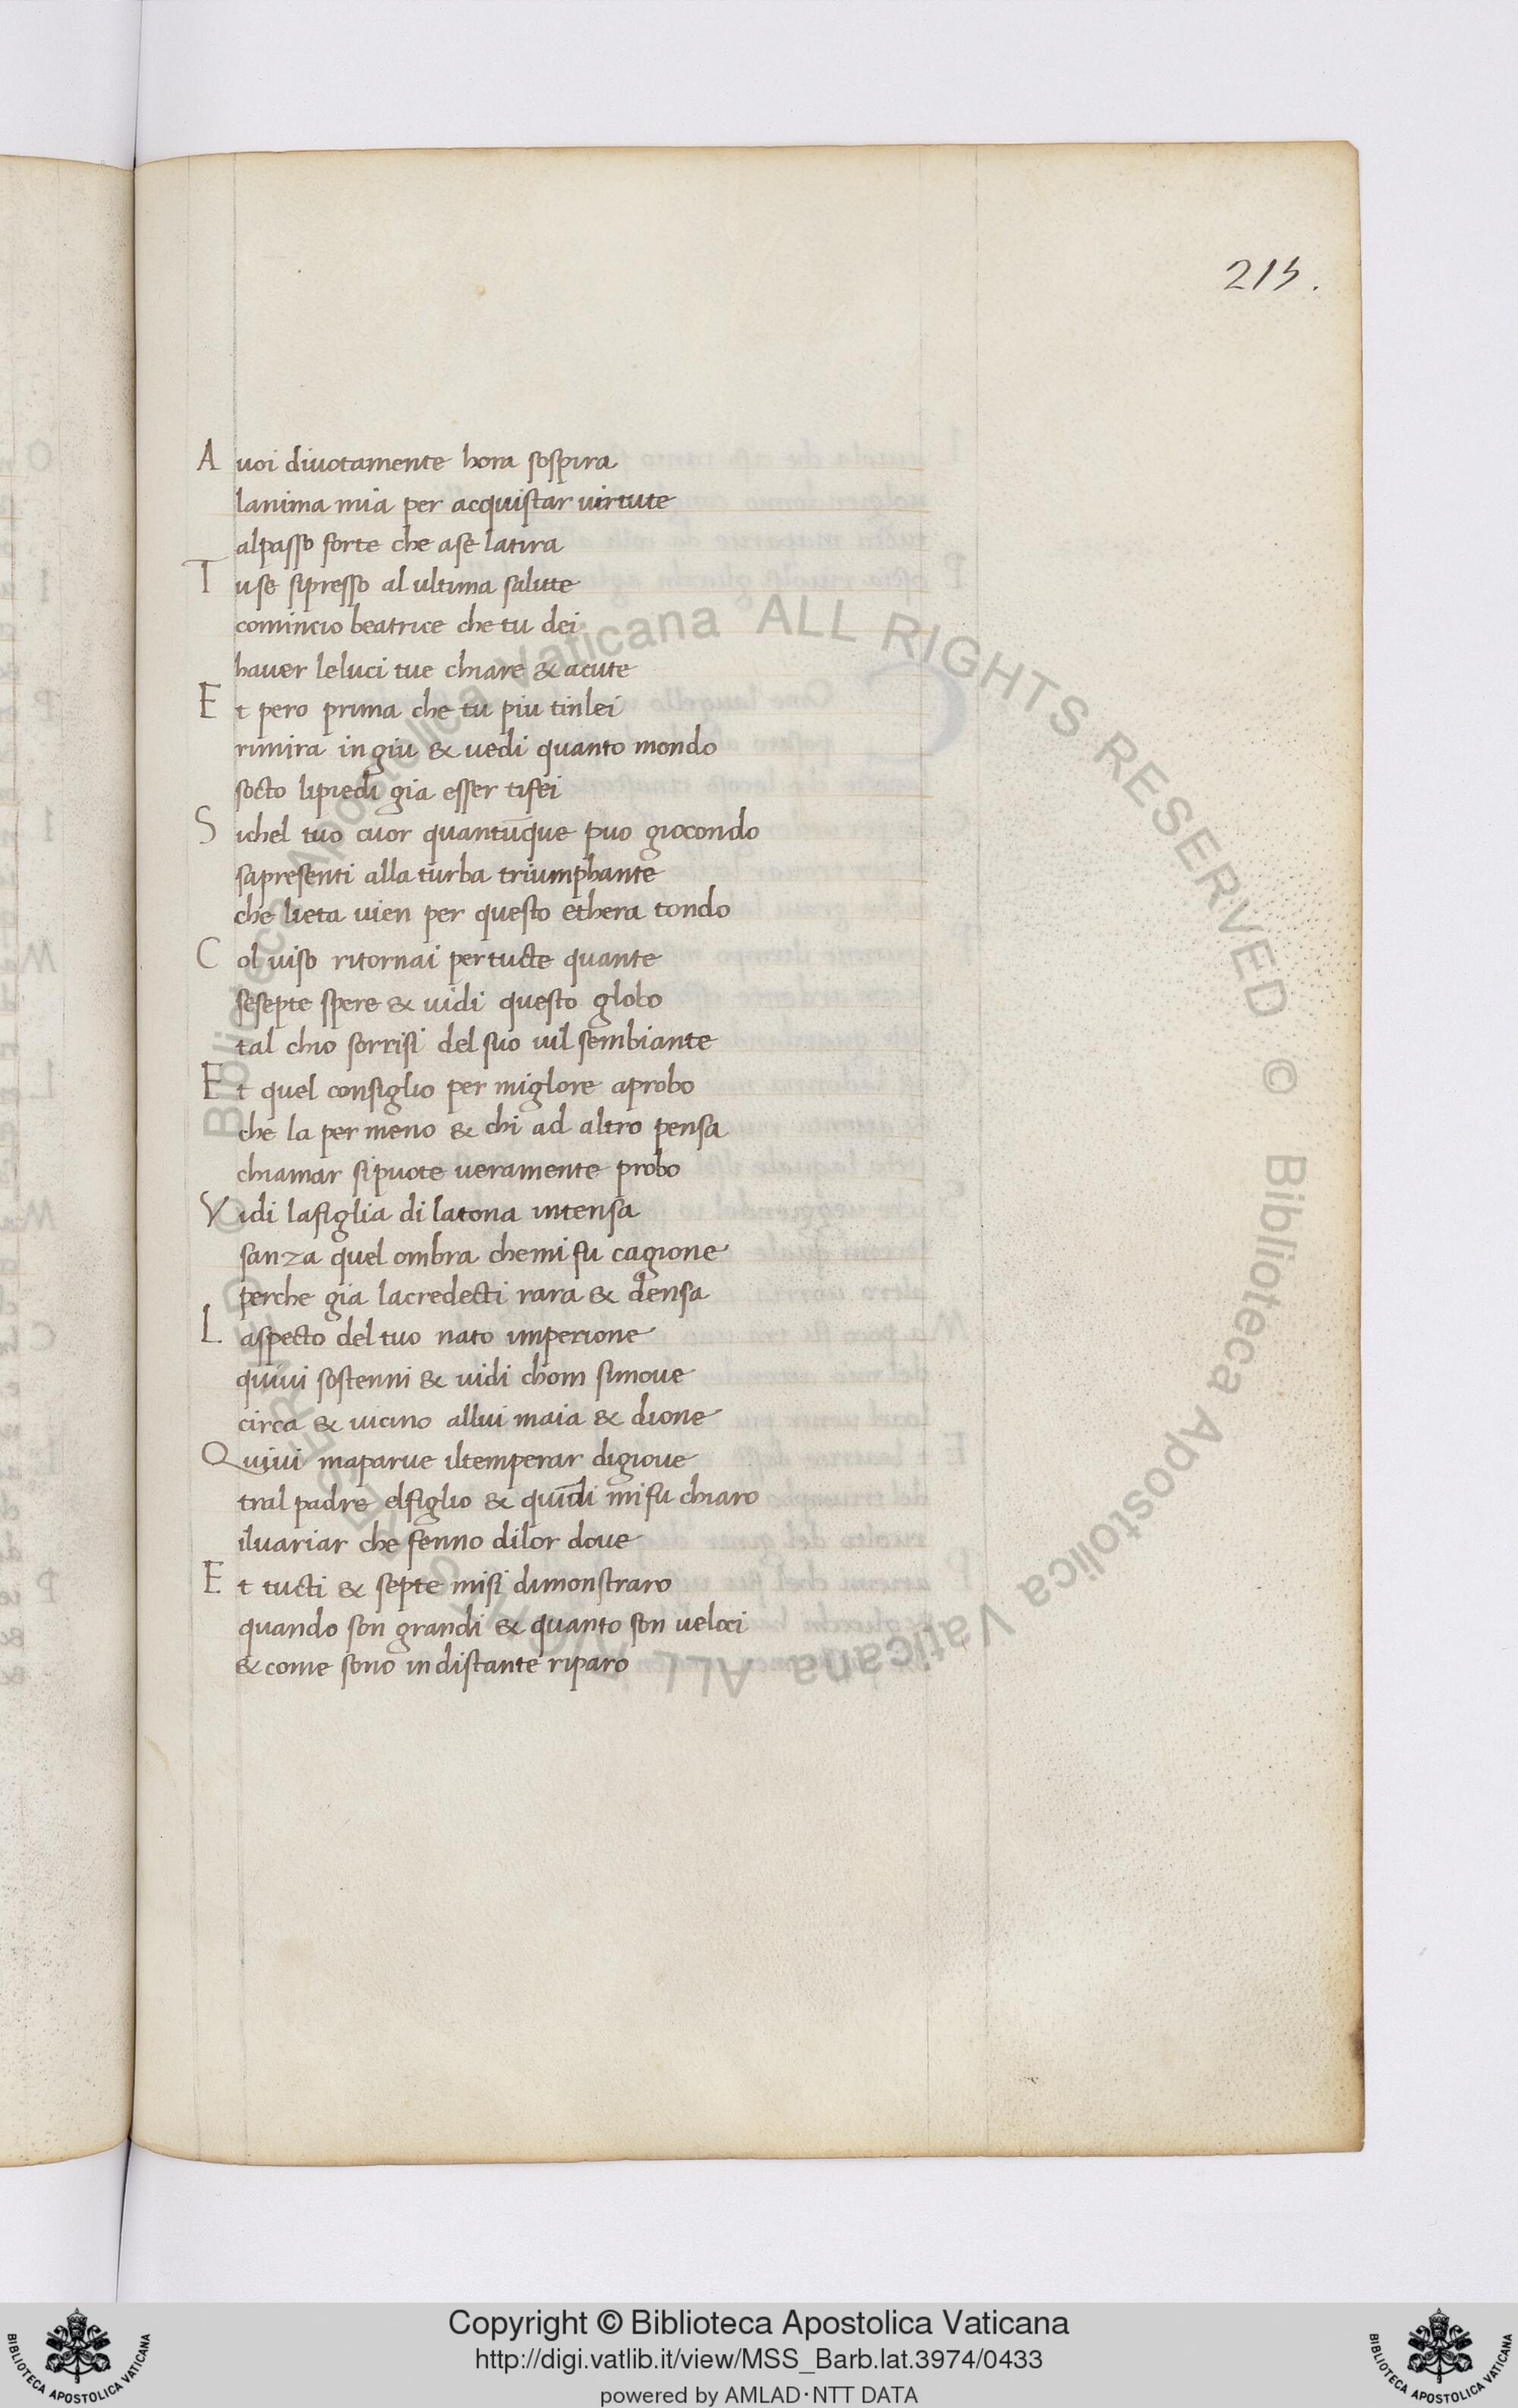 213.
A voi divotamente hora sospira
lanima mia per acquistar virtute
alpasso forte che ase latira
T use sipresso al ultima salute
comincio beatrice che tu dei
haver leluci tue chiare & acute
E t pero prima che tu piu tinlei
rimira in giu & vedi quanto mondo
socto lipiedi gia esser tifei
S ichel tuo cuor quantūque puo giocondo
sapresenti alla turba triumphante
che lieta vien per questo ethera tondo
C ol viso ritornai per tucte quante
sesepte spere & vidi questo globo
tal chio sorrisi del suo vil sembiante
E t quel consiglio per miglore aprobo
che la per meno & chi ad altro pensa
chiamar sipuote veramente probo
V idi lafiglia di latona intensa
sanza quel ombra chemi fu cagione
perche gia lacredecti rara & densa
L aspecto del tuo nato imperione
quivi sostenni & vidi chom simove
circa & vicino allui maia & dione
Q uivi maparve iltemperar digiove
tral padre elfiglio & quīdi mi fu chiaro
ilvariar che fenno dilor dove
E t tucti & septe misi dimonstraro
quando son grandi & quanto son veloci
& come sono in distante riparo
Biblioteca Apostolica Vaticana ALL RIGHTS RESERVED © Biblioteca Apostolica Vaticana ALL RIGHTS RESERVED ©
Copyright © Biblioteca Apostolica Vaticana
http://digi.vatlib.it/view/MSS_Barb.lat.3974/0433
powered by AMLAD·NTT DATA
BIBLIOTECA APOSTOLICA VATICANA
BIBLIOTECA APOSTOLICA VATICANA